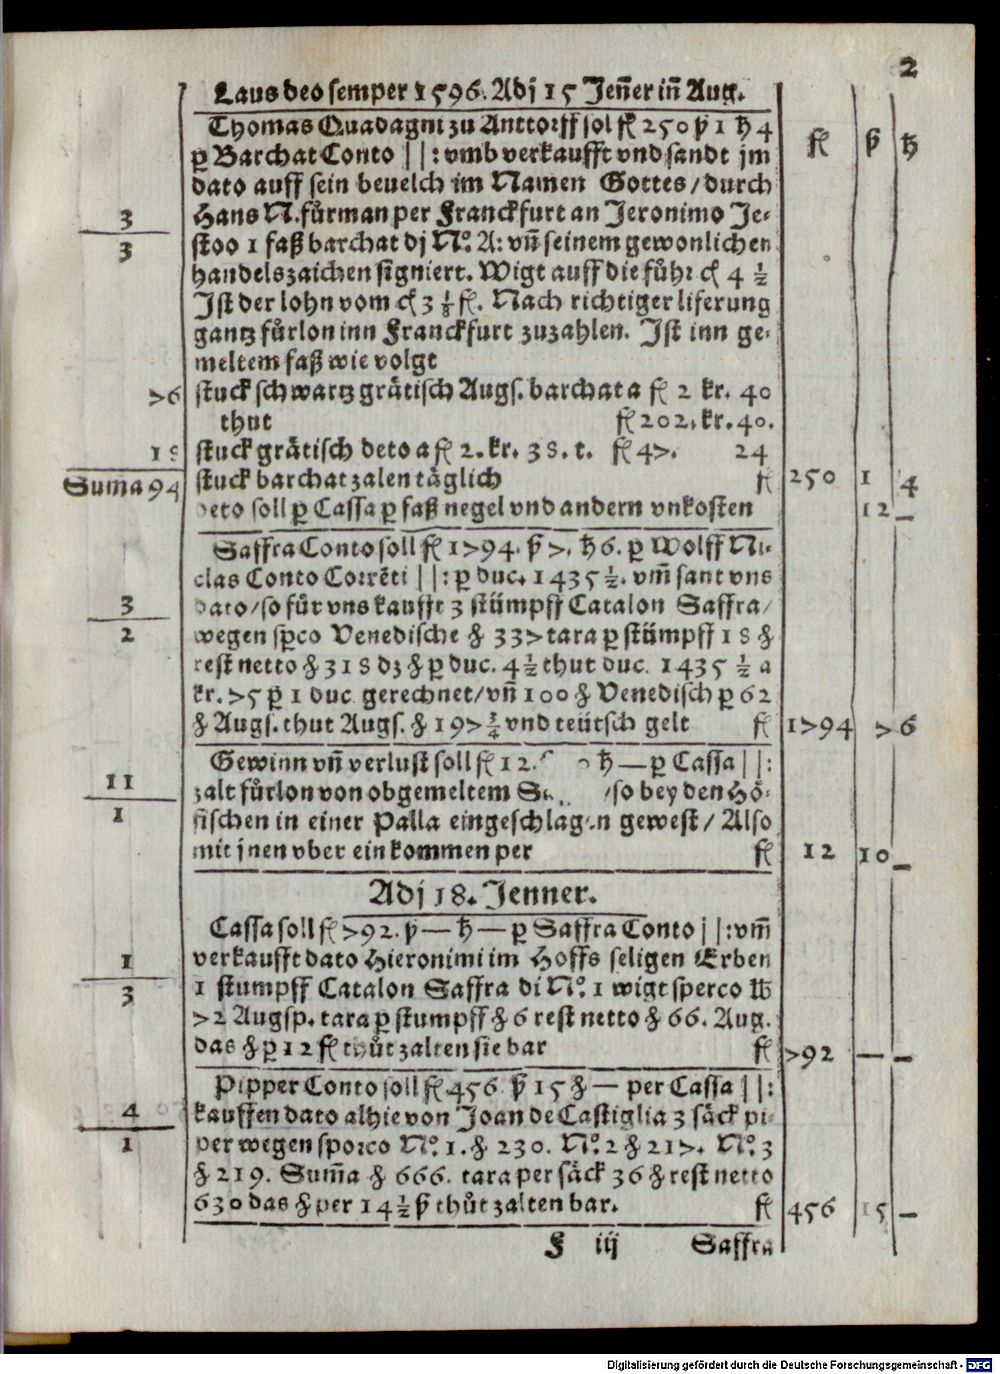 2
Laus deo semper 1596. Adj 15 Jeñer iñ Aug.
Thomas Quadagni zu Anttorff sol fl 250 ß 1 hl 4
ꝑ Barchat Conto | |: vmb verkaufft vnd sandt jm
dato auff sein beuelch im Namen Gottes/durch
Hans N. fůrman per Franckfurt an Jeronimo Je-
3
3
stoo 1 faß barchat dj Nº. A: vñ seinem gewonlichen
handelszaichen signiert. Wigt auff die fůhr ct 4 ½
Ist der lohn vom ct 3 ⅛ fl. Nach richtiger liferung
gantz fůrlon inn Franckfurt zuzahlen. Ist inn ge-
meltem faß wie volgt
76 stuck schwartz grätisch Augs. barchat a fl 2 kr. 40
thut fl 202. kr. 40.
18 stuck grätisch deto a fl 2. kr. 38. t. fl 47. 24
Suma 94 stuck barchat zalen täglich fl 250 1 4
deto soll ꝑ Cassa ꝑ faß negel vnd andern vnkosten 12 —
Saffra Conto soll fl 1794. ß 7. hl 6. ꝑ Wolff Ni-
clas Conto Corrēti | |: ꝑ duc. 1435 ½. vm̃ sant vns
3
2
dato/so fůr vns kaufft 3 stümpff Catalon Saffra/
wegen sꝑco Venedische ℔ 337 tara ꝑ stümpff 18 ℔
rest netto ℔ 318 dz ℔ ꝑ duc. 4 ½ thut duc. 1435 ½ a
kr. 75 ꝑ 1 duc. gerechnet/vñ 100 ℔ Venedisch ꝑ 62
℔ Augs. thut Augs. ℔ 197 ¾ vnd teütsch gelt fl 1794 7 6
Gewinn vñ verlust soll fl 12. hl — ꝑ Cassa | |:
11
1
zalt fůrlon von obgemeltem /so bey den Hö-
fischen in einer Palla eingeschlagen gewest/ Also
mit jnen vber ein kommen per fl 12 10 —
Adj 18. Jenner.
Cassa soll fl 792. ß — hl — ꝑ Saffra Conto | |: vm̃
1
3
verkaufft dato Hieronimi im Hoffs seligen Erben
1 stumpff Catalon Saffra di Nº. 1 wigt sperco ℔
72 Augsp. tara ꝑ stumpff ℔ 6 rest netto ℔ 66. Aug.
das ℔ ꝑ 12 fl thůt zalten sie bar fl 792 — —
Pipper Conto soll fl 456 ß 15 ℔ — per Cassa | |:
4
1
kauffen dato alhie von Joan de Castiglia 3 säck pi-
per wegen sporco Nº. 1. ℔ 230. Nº. 2 ℔ 217. Nº. 3
℔ 219. Sum̃a ℔ 666. tara per säck 36 ℔ rest netto
630 das ℔ per 14 ½ ß thůt zalten bar. fl 456 15 —
F iij Saffra
Digitalisierung gefördert durch die Deutsche Forschungsgemeinschaft - DFG